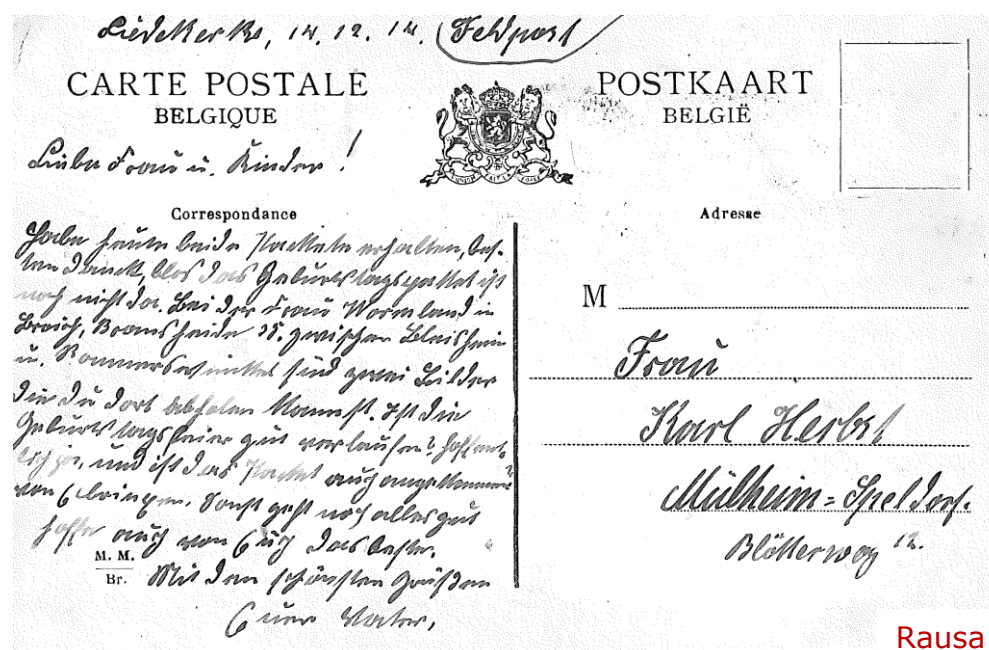 Liedekerke, 14. 12. 14. (Feldpost
CARTE POSTALE
BELGIQUE
POSTKAART
BELGIË
Liebe Frau u. Kinder!
Correspondance
Habe heute beide Packete erhalten, bes-
ten Danck, blos das Geburtstagspaket ist
noch nicht da. Bei der Frau Wormland in
Broich, 35. zwischen Bleichstein
u. sind zwei Bilder
die du dort abholen kannst. Ist die
Geburtstagsfeier gut verlaufen? Hoffent-
lich ja, und ist das Packet auch angekommen?
von Sonst geht noch alles gut
hoffe auch von Euch das beste.
Mit den schönsten Grüßen
Euer Vater,
M. M.
Br.
Adresse
M
Frau
Karl Herbst
Mülheim=Speldorf.
Blötterweg 12.
Rausa